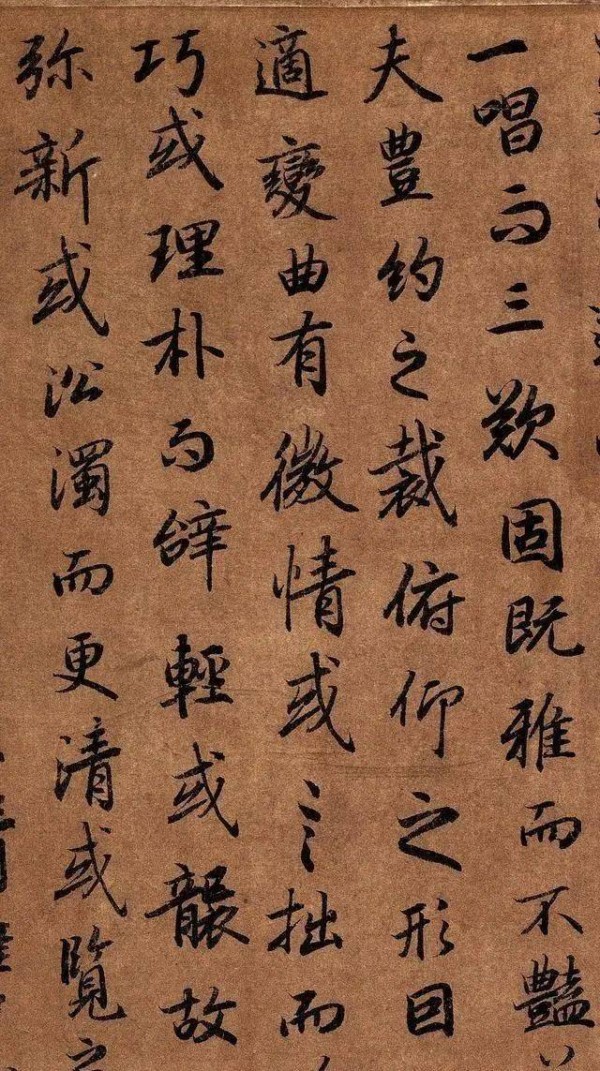 一唱而三歎固既雅而不豔
夫豊約之裁俯仰之形囙
適變曲有微情或言拙而
巧或理朴而辝輕或襲故
弥新或沿濁而更清或覽之